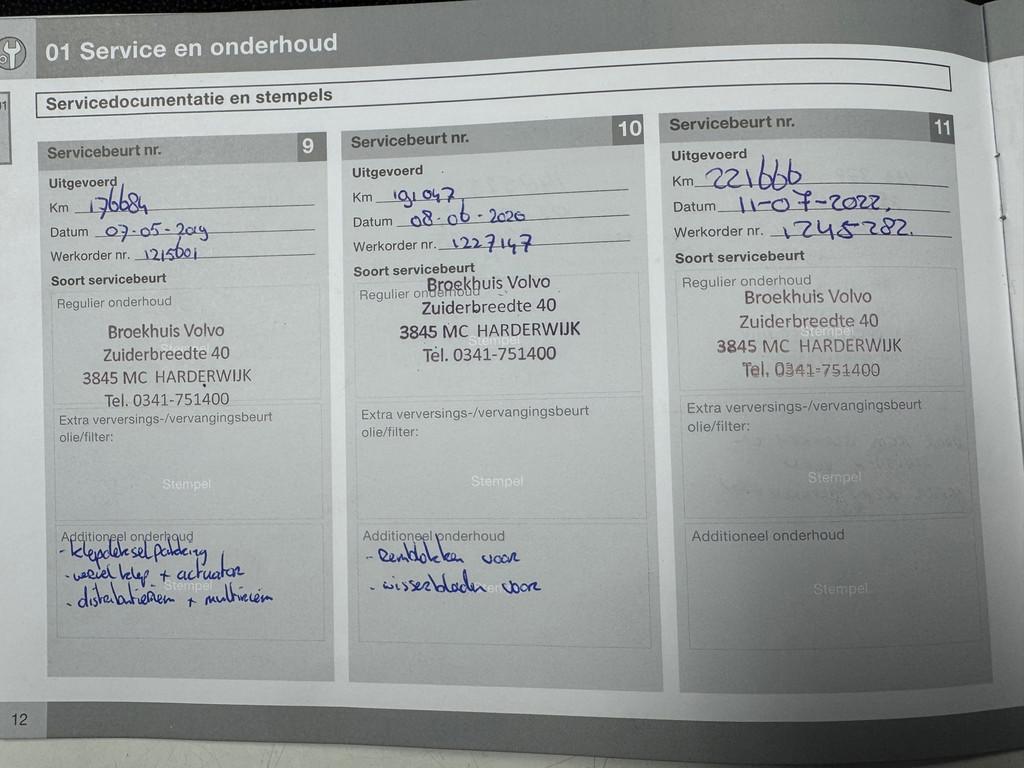 01 Service en onderhoud
01
Servicedocumentatie en stempels
Servicebeurt nr. 9
Uitgevoerd
Km 176684
Datum 07-05-2019
Werkorder nr. 1215601
Soort servicebeurt
Regulier onderhoud
Broekhuis Volvo
Zuiderbreedte 40
Stempel
3845 MC HARDERWIJK
Tel. 0341-751400
Extra verversings-/vervangingsbeurt
olie/filter:
Stempel
Additioneel onderhoud
- klepdekselpakking
- wervel klep + actuator
Stempel
- distributieriem + multiriem
Servicebeurt nr. 10
Uitgevoerd
Km 191047
Datum 08-06-2020
Werkorder nr. 1227147
Soort servicebeurt
Regulier onderhoud
Broekhuis Volvo
Zuiderbreedte 40
3845 MC HARDERWIJK
Stempel
Tel. 0341-751400
Extra verversings-/vervangingsbeurt
olie/filter:
Stempel
Additioneel onderhoud
- remblokken voor
- wisserbladen voor
Servicebeurt nr. 11
Uitgevoerd
Km 221666
Datum 11-07-2022.
Werkorder nr. 1245282.
Soort servicebeurt
Regulier onderhoud
Broekhuis Volvo
Zuiderbreedte 40
Stempel
3845 MC HARDERWIJK
Tel. 0341-751400
Extra verversings-/vervangingsbeurt
olie/filter:
Stempel
Additioneel onderhoud
Stempel
12